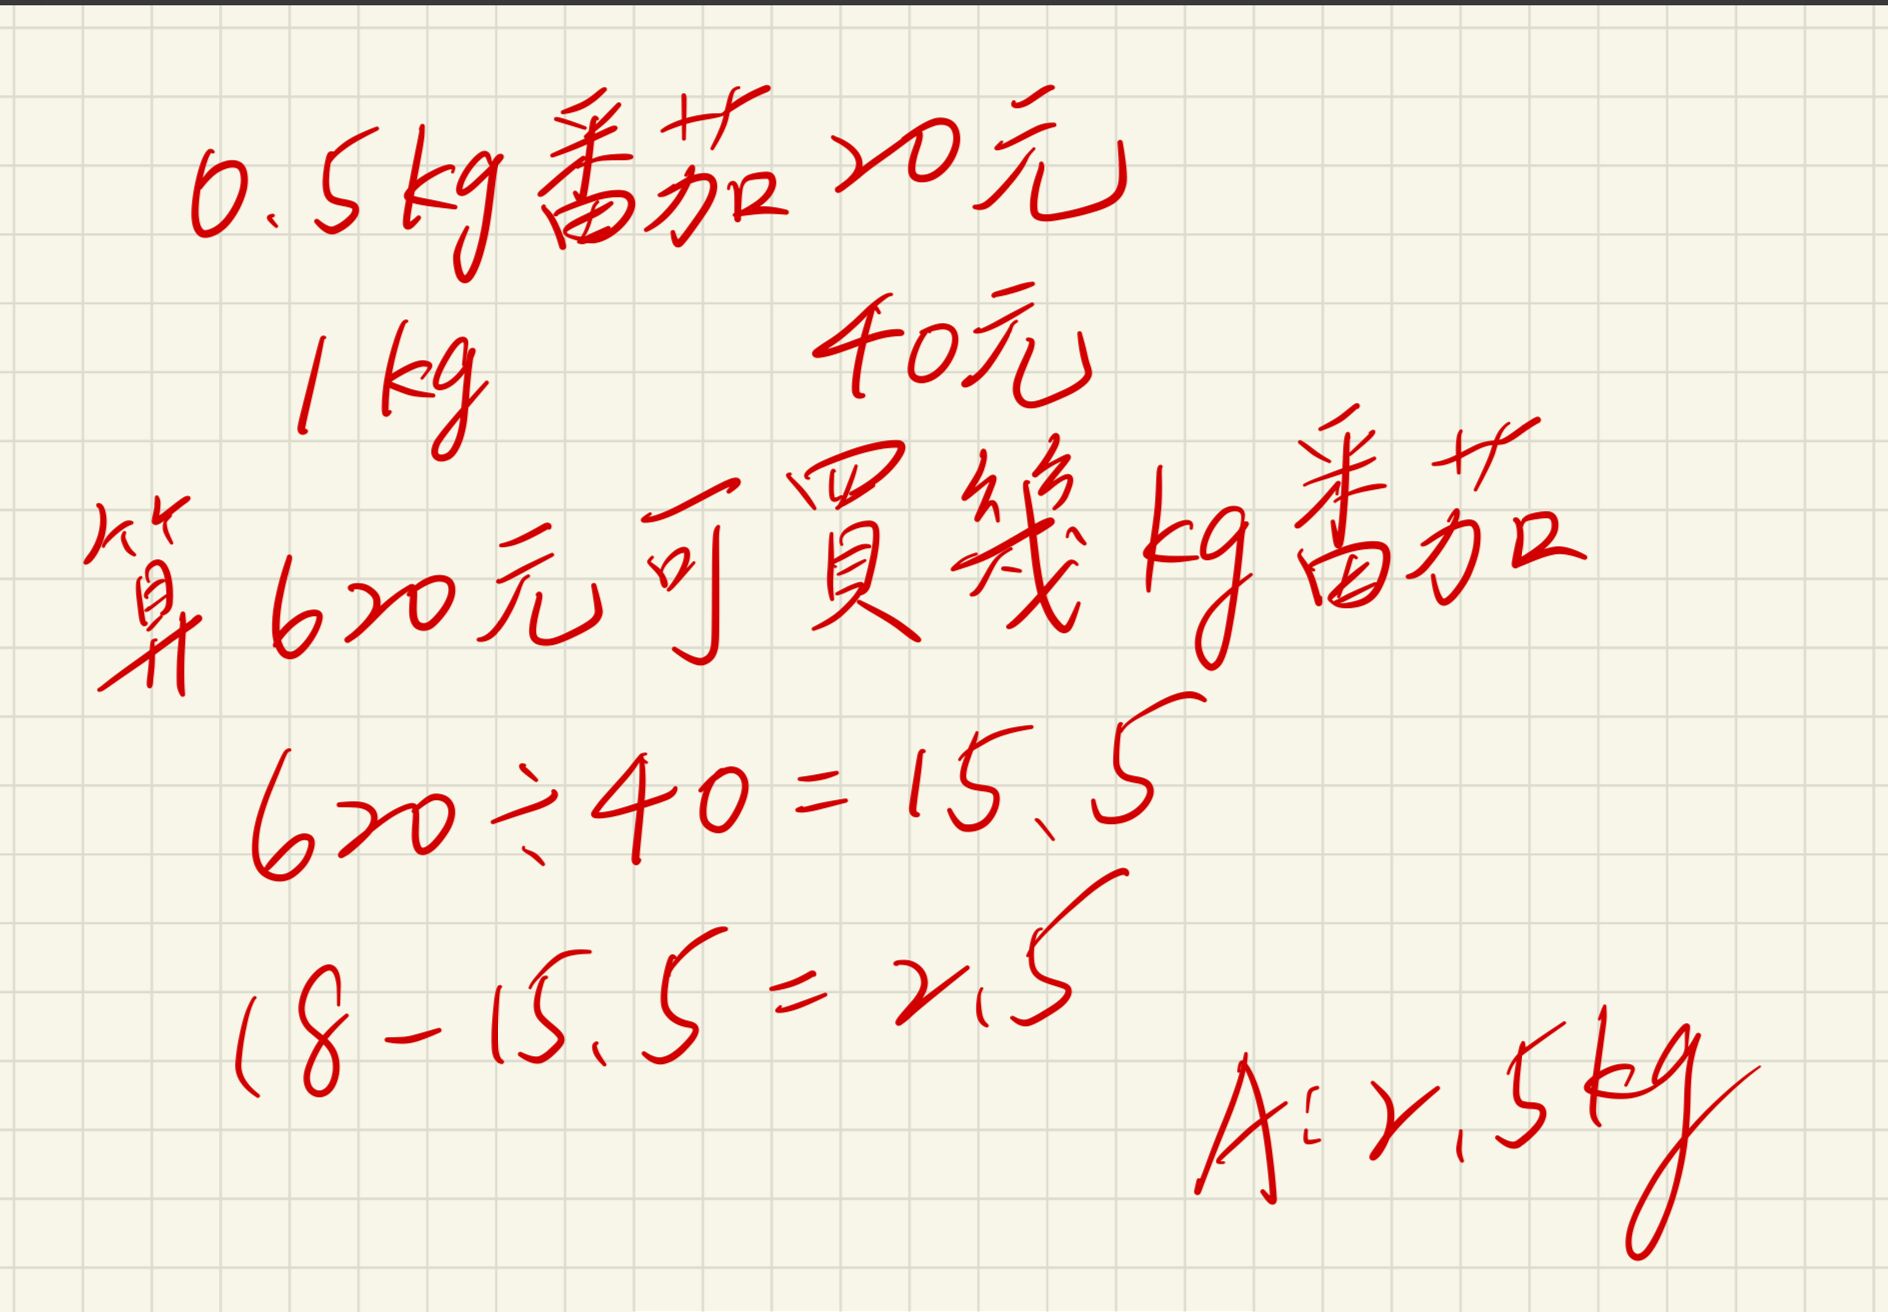 0.5kg番茄20元
1kg 40元
算620元可買幾kg番茄
620÷40=15.5
18-15.5=2.5
A:2.5kg